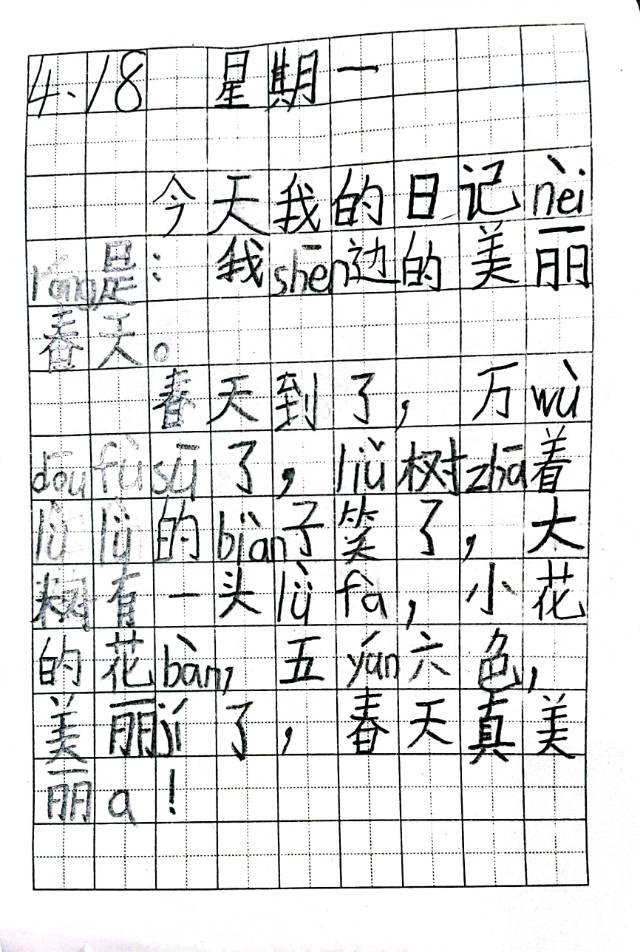 4.18 星期一
今天我的日记nèi
róng是:我shēn边的美丽
春天。
春天到了,万wù
dōufùsū了,liǔ树zhā着
lǜ lǜ的biàn子笑了,大
树有一头lǜ fà,小花
的花bàn,五yán六色,
美丽jí了,春天真美
丽a!